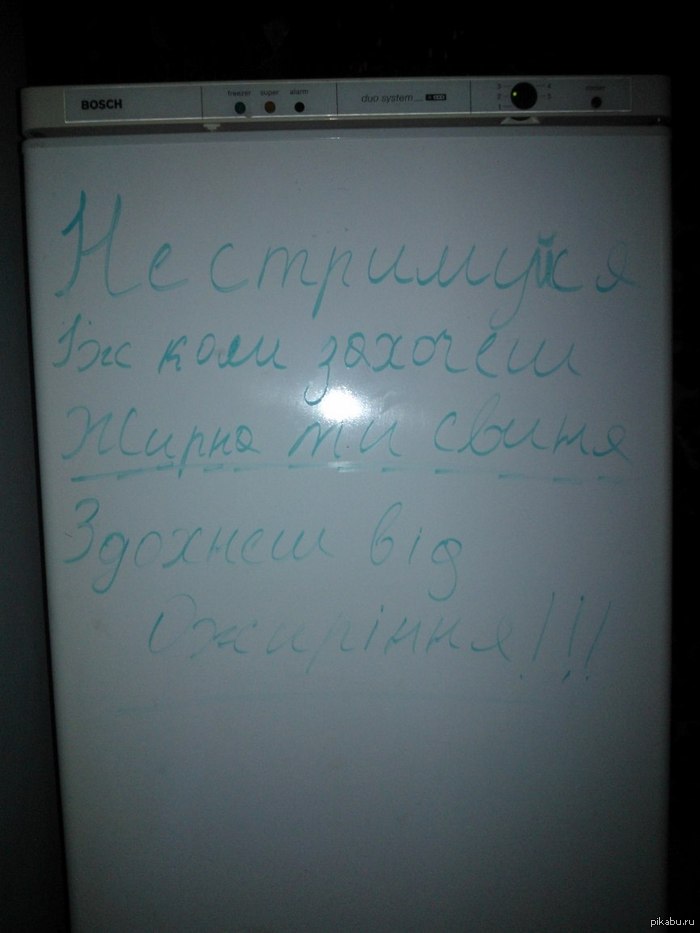 BOSCH
freezer super alarm
duo system
Не стримуйся
Їж коли захочеш
Жирна ти свиня
Здохнеш від
Ожиріння!!!
pikabu.ru